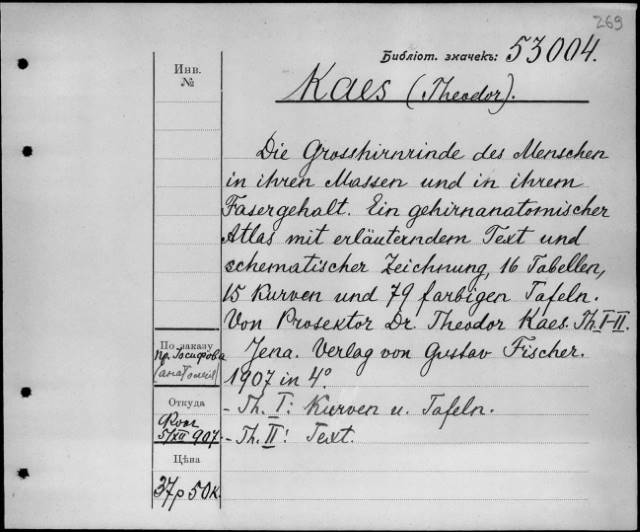 269
Библіот. значекъ: 53004.
Инв.
№
Kaes (Theodor).
Die Grosshirnrinde des Menschen
in ihren Massen und in ihrem
Fasergehalt. Ein gehirnanatomischer
Atlas mit erläuterndem Text und
schematischer Zeichnung, 16 Tabellen,
15 Kurven und 79 farbigen Tafeln.
Von Prosektor Dr. Theodor Kaes. Th. I-II.
Jena. Verlag von Gustav Fischer.
1907 in 4°.
- Th. I: Kurven u. Tafeln.
- Th. II: Text.
По заказу
пр. Іосифова
(анатомія)
Откуда
5/XII 907.
Цѣна
37р 50к.